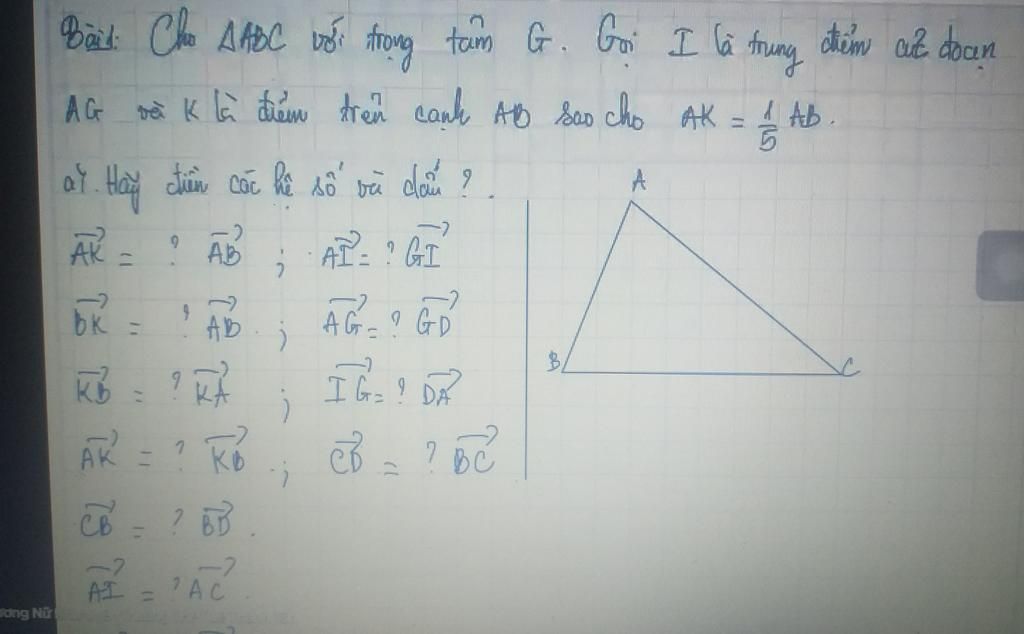 Bài 1: Cho ΔABC với trọng tâm G. Gọi I là trung điểm của đoạn
AG và K là điểm trên cạnh AB sao cho AK = 1/5 AB.
a). Hãy điền các hệ số và dấu ?.
A
AK = ? AB ; AI = ? GI
BK = ? AB ; AG = ? GD
B
C
KB = ? KA ; IG = ? DA
AK = ? KB ; CD = ? BC
CB = ? BD.
AI = ? AC.
ương Nữ